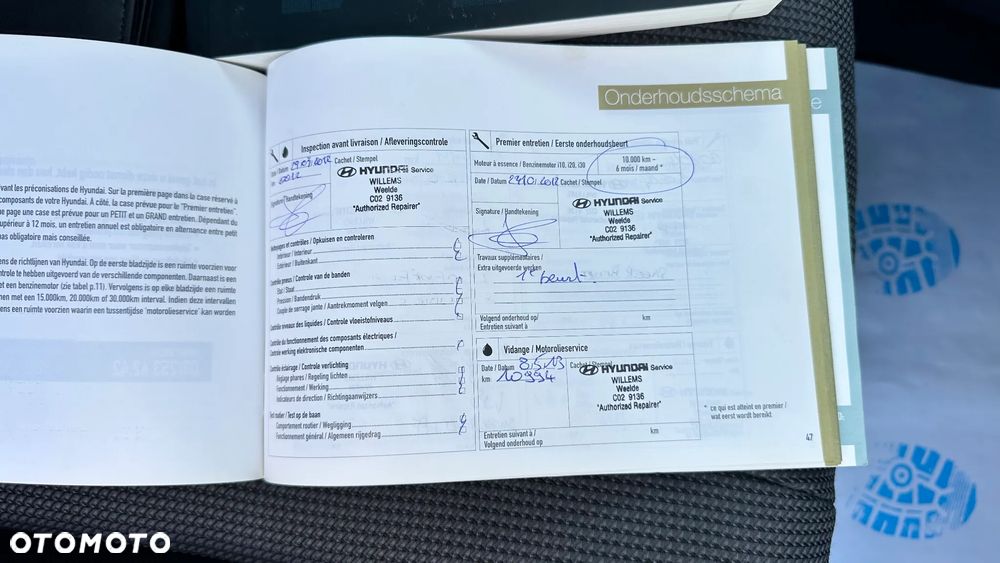 Onderhoudsschema
e
vant les préconisations de Hyundai. Sur la première page dans la case réservé à
composants de votre Hyundai. À côté, la case prévue pour le "Premier entretien".
e page une case est prévue pour un PETIT et un GRAND entretien. Dépendant du
supérieur à 12 mois, un entretien annuel est obligatoire en alternance entre petit
pas obligatoire mais conseillée.
ens de richtlijnen van Hyundai. Op de eerste bladzijde is een ruimte voorzien voor
ntrole te hebben uitgevoerd van de verschillende componenten. Daarnaast is een
et een benzinemotor (zie tabel p.11). Vervolgens is op elke bladzijde een ruimte
nen met een 15.000km, 20.000km of 30.000km interval. Indien deze intervallen
ens een ruimte voorzien waarin een tussentijdse 'motorolieservice' kan worden
Inspection avant livraison / Afleveringscontrole
Date / Datum
Cachet / Stempel
HYUNDAI Service
WILLEMS
Weelde
C02 9136
"Authorized Repairer"
Signature / Handtekening
Nettoyages et contrôles / Opkuisen en controleren
Intérieur / Interieur
Extérieur / Buitenkant
Contrôle pneus / Controle van de banden
Etat / Staat
Pression / Bandendruk
Couple de serrage jante / Aantrekmoment velgen
Contrôle niveaux des liquides / Controle vloeistofniveaus
Contrôle du fonctionnement des composants électriques /
Controle werking elektronische componenten
Contrôle éclairage / Controle verlichting
Réglage phares / Regeling lichten
Fonctionnement / Werking
Indicateurs de direction / Richtingaanwijzers
Test routier / Test op de baan
Comportement routier / Wegligging
Fonctionnement général / Algemeen rijgedrag
Premier entretien / Eerste onderhoudsbeurt
Moteur à essence / Benzinemotor i10, i20, i30
10.000 km -
6 mois / maand *
Date / Datum 29/10/2012 Cachet / Stempel
HYUNDAI Service
WILLEMS
Weelde
C02 9136
"Authorized Repairer"
Signature / Handtekening
Travaux supplémentaires /
Extra uitgevoerde werken
1e beurt.
Volgend onderhoud op/
Entretien suivant à
km
Vidange / Motorolieservice
Date / Datum 8.5.13 Cachet / Stempel
km 10994
HYUNDAI Service
WILLEMS
Weelde
C02 9136
"Authorized Repairer"
Entretien suivant à /
Volgend onderhoud op
km
* ce qui est atteint en premier /
wat eerst wordt bereikt
47
OTOMOTO